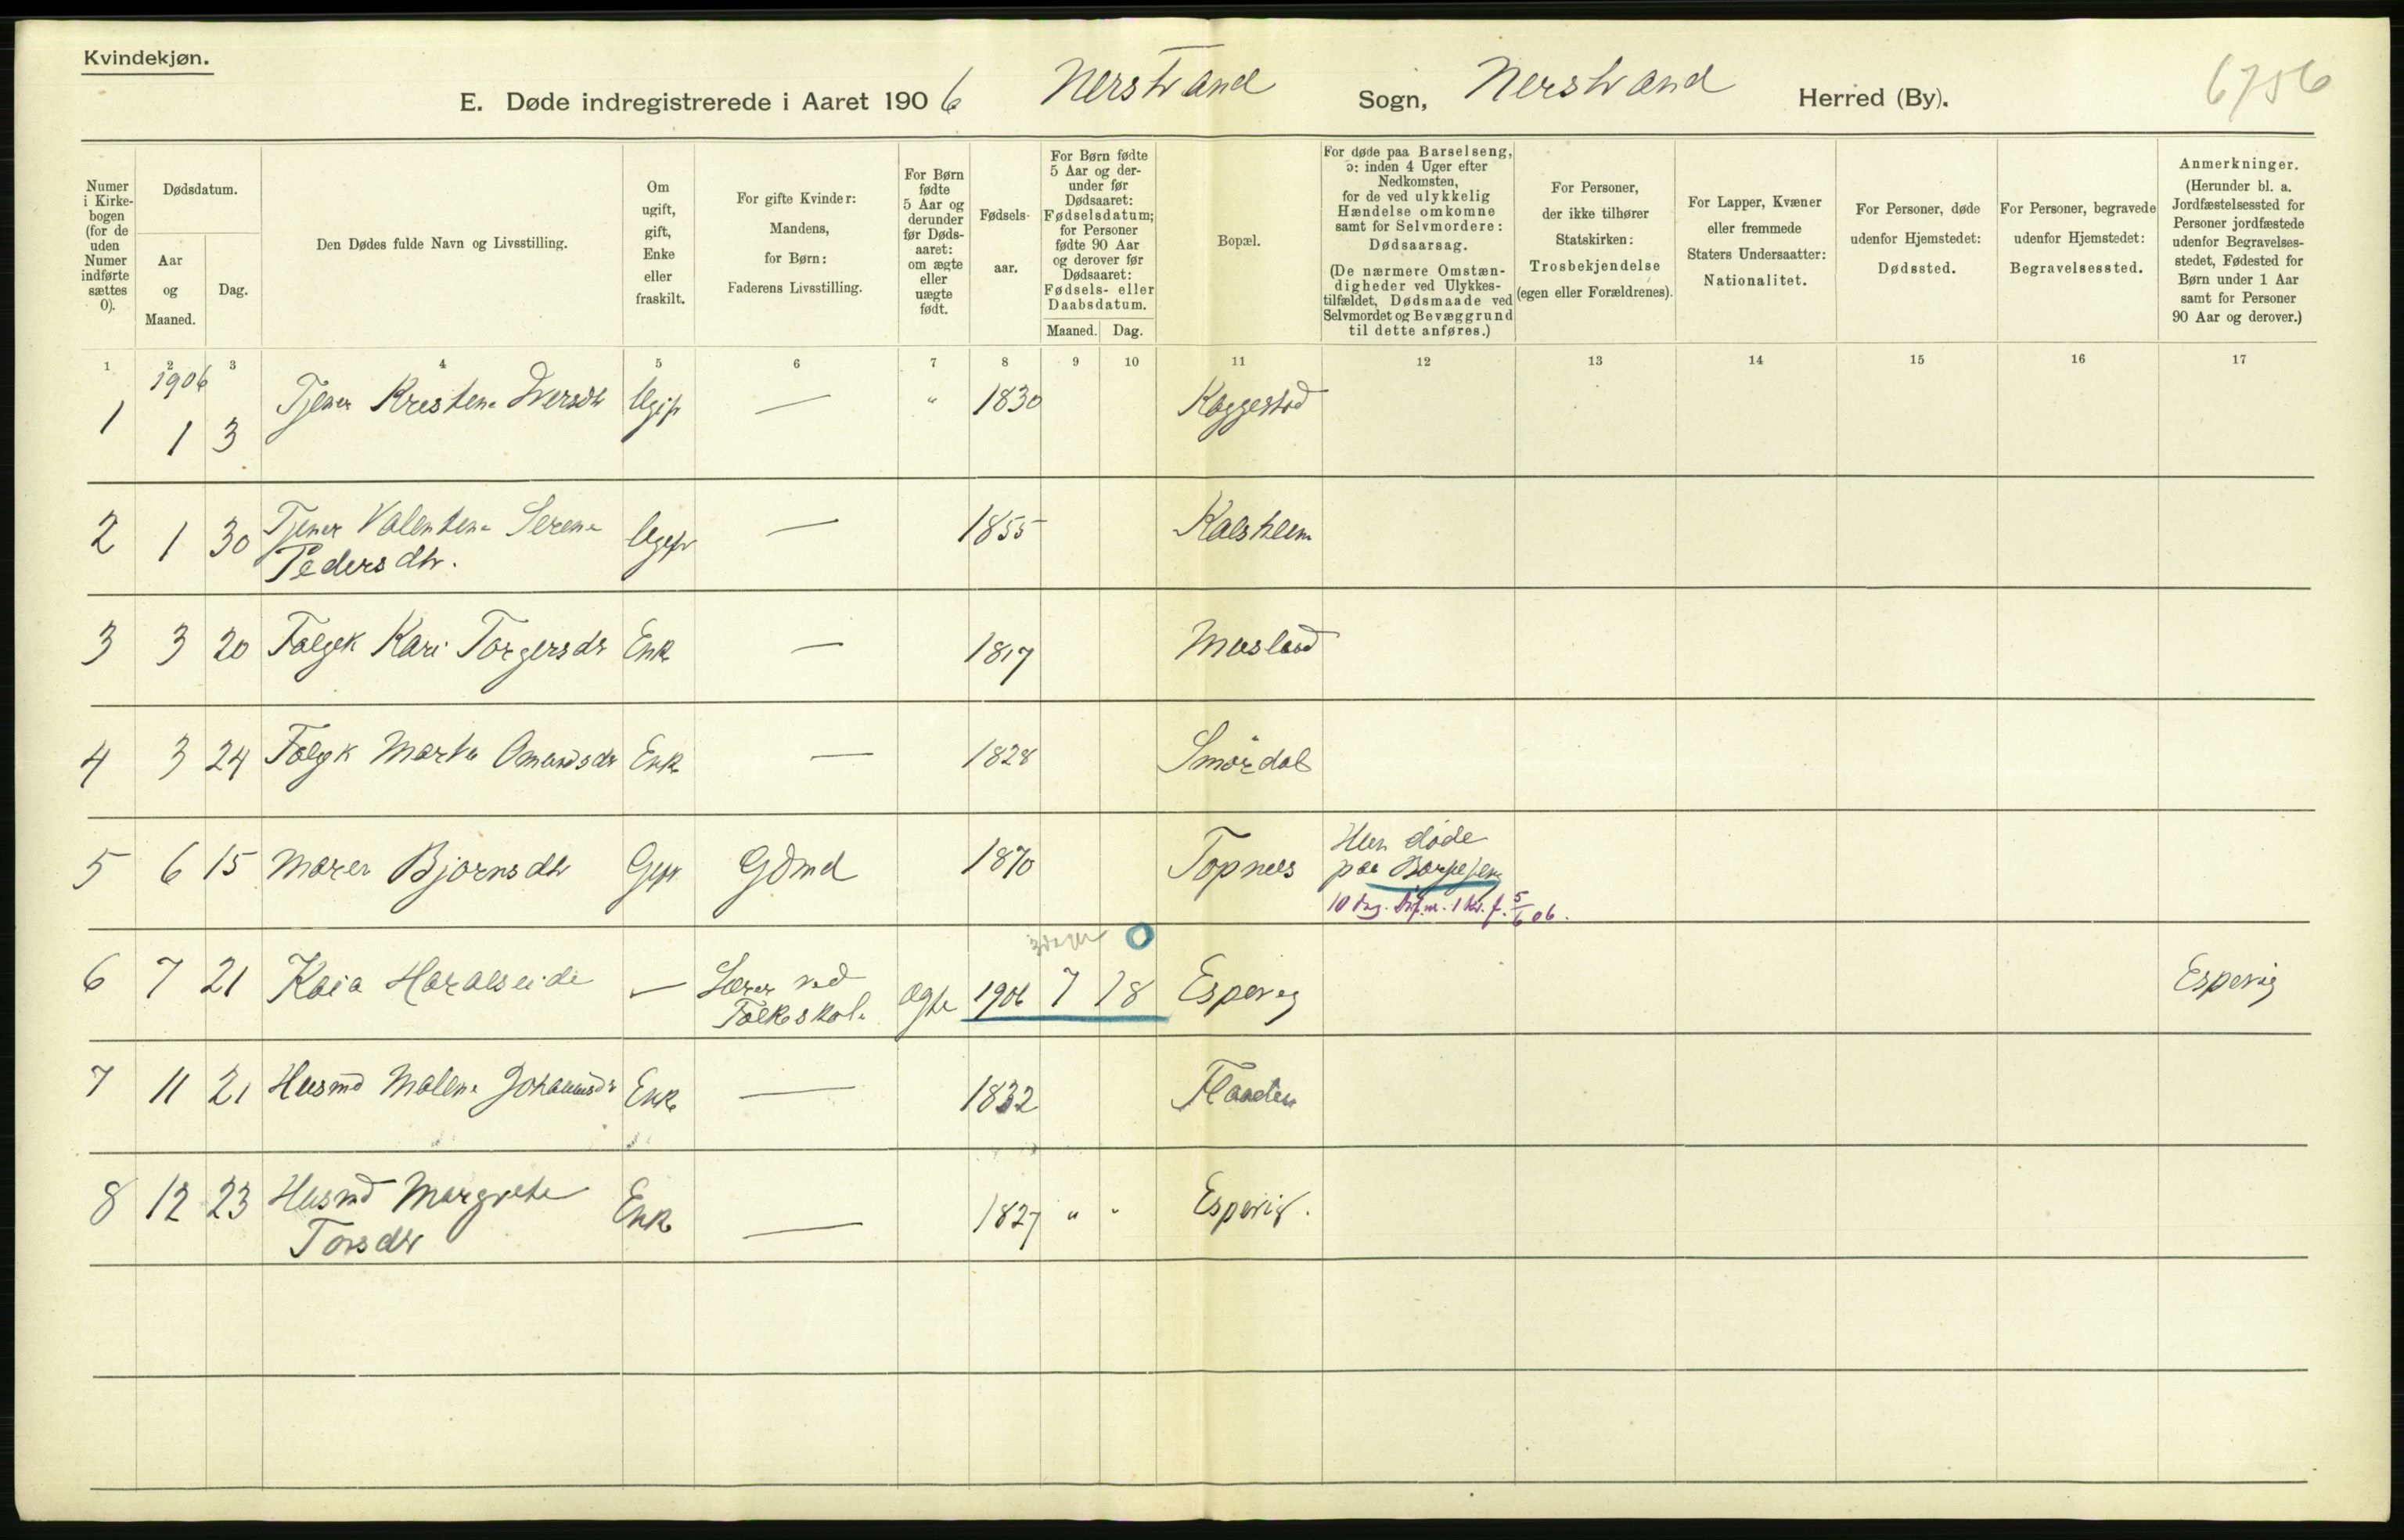 Kvindekjøn.
E. Døde indregistrerede i Aaret 1906 Nerstrand Sogn, Nerstrand Herred (By).
6756
Numer i Kirkebogen (for de uden Numer indførte sættes 0).
Dødsdatum.
Aar og Maaned.
Dag.
Den Dødes fulde Navn og Livsstilling.
Om ugift, gift, Enke eller fraskilt.
For gifte Kvinder: Mandens, for Børn: Faderens Livsstilling.
For Børn fødte 5 Aar og derunder før Dødsaaret: om ægte eller uægte født.
Fødselsaar.
For Børn fødte 5 Aar og derunder før Dødsaaret: Fødselsdatum; for Personer fødte 90 Aar og derover før Dødsaaret: Fødsels- eller Daabsdatum.
Maaned. Dag.
Bopæl.
For døde paa Barselseng, ɔ: inden 4 Uger efter Nedkomsten, for de ved ulykkelig Hændelse omkomne samt for Selvmordere: Dødsaarsag.
(De nærmere Omstændigheder ved Ulykkestilfældet, Dødsmaade ved Selvmordet og Bevæggrund til dette anføres.)
For Personer, der ikke tilhører Statskirken: Trosbekjendelse (egen eller Forældrenes).
For Lapper, Kvæner eller fremmede Staters Undersaatter: Nationalitet.
For Personer, døde udenfor Hjemstedet: Dødssted.
For Personer, begravede udenfor Hjemstedet: Begravelsessted.
Anmerkninger.
(Herunder bl. a. Jordfæstelsessted for Personer jordfæstede udenfor Begravelsesstedet, Fødested for Børn under 1 Aar samt for Personer 90 Aar og derover.)
1 2 3 4 5 6 7 8 9 10 11 12 13 14 15 16 17
1906
1 1 3 Tjener Kristene Iversdtr Ugift — " 1830
2 1 30 Tjener Valentene Serene Pedersdtr. Ugift — 1855 Kalsheim
3 3 20 Folgek Kari Torgersdr Enk — 1817 Musland
4 3 24 Folgk Marta Amundsdr Enk — 1828 Smørdal
5 6 15 Maren Bjørnsdtr Gift Gdmd 1870 Topnes Hun døde
paa Barselseng
10 dag. 1 Kv. f. 5/6 06.
3 dage 0
6 7 21 Kaia Haralseide — Lærer ved Folkeskole Ægte 1906 7 18 Espevig Espevig
7 11 21 Husmd Malene Johannesdr Enk — 1832
8 12 23 Husmd Margrete Torsdtr Enk — 1827 " " Espevig.